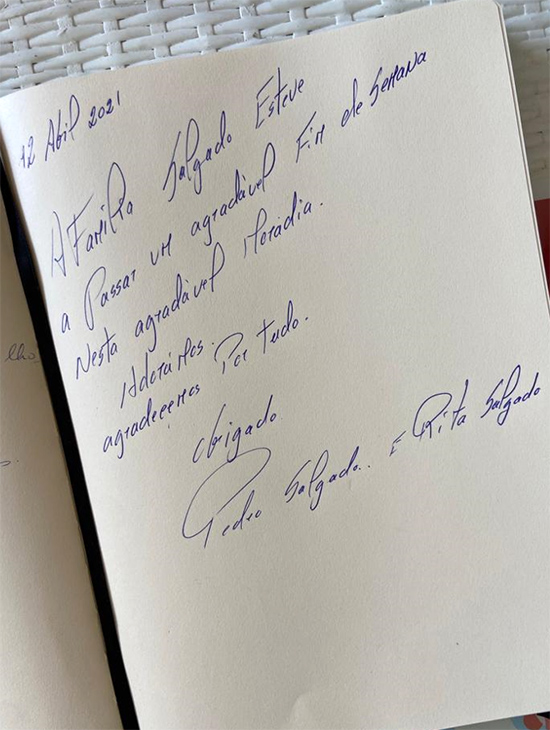 12 Abil 2021
A Familia Salgado Esteve
a Passar um agradável Fim de Semana
Nesta agradável Moradia.
Adorámos.
agradecemos Por tudo.
Obrigado
Pedro Salgado.. E Rita Salgado
lho